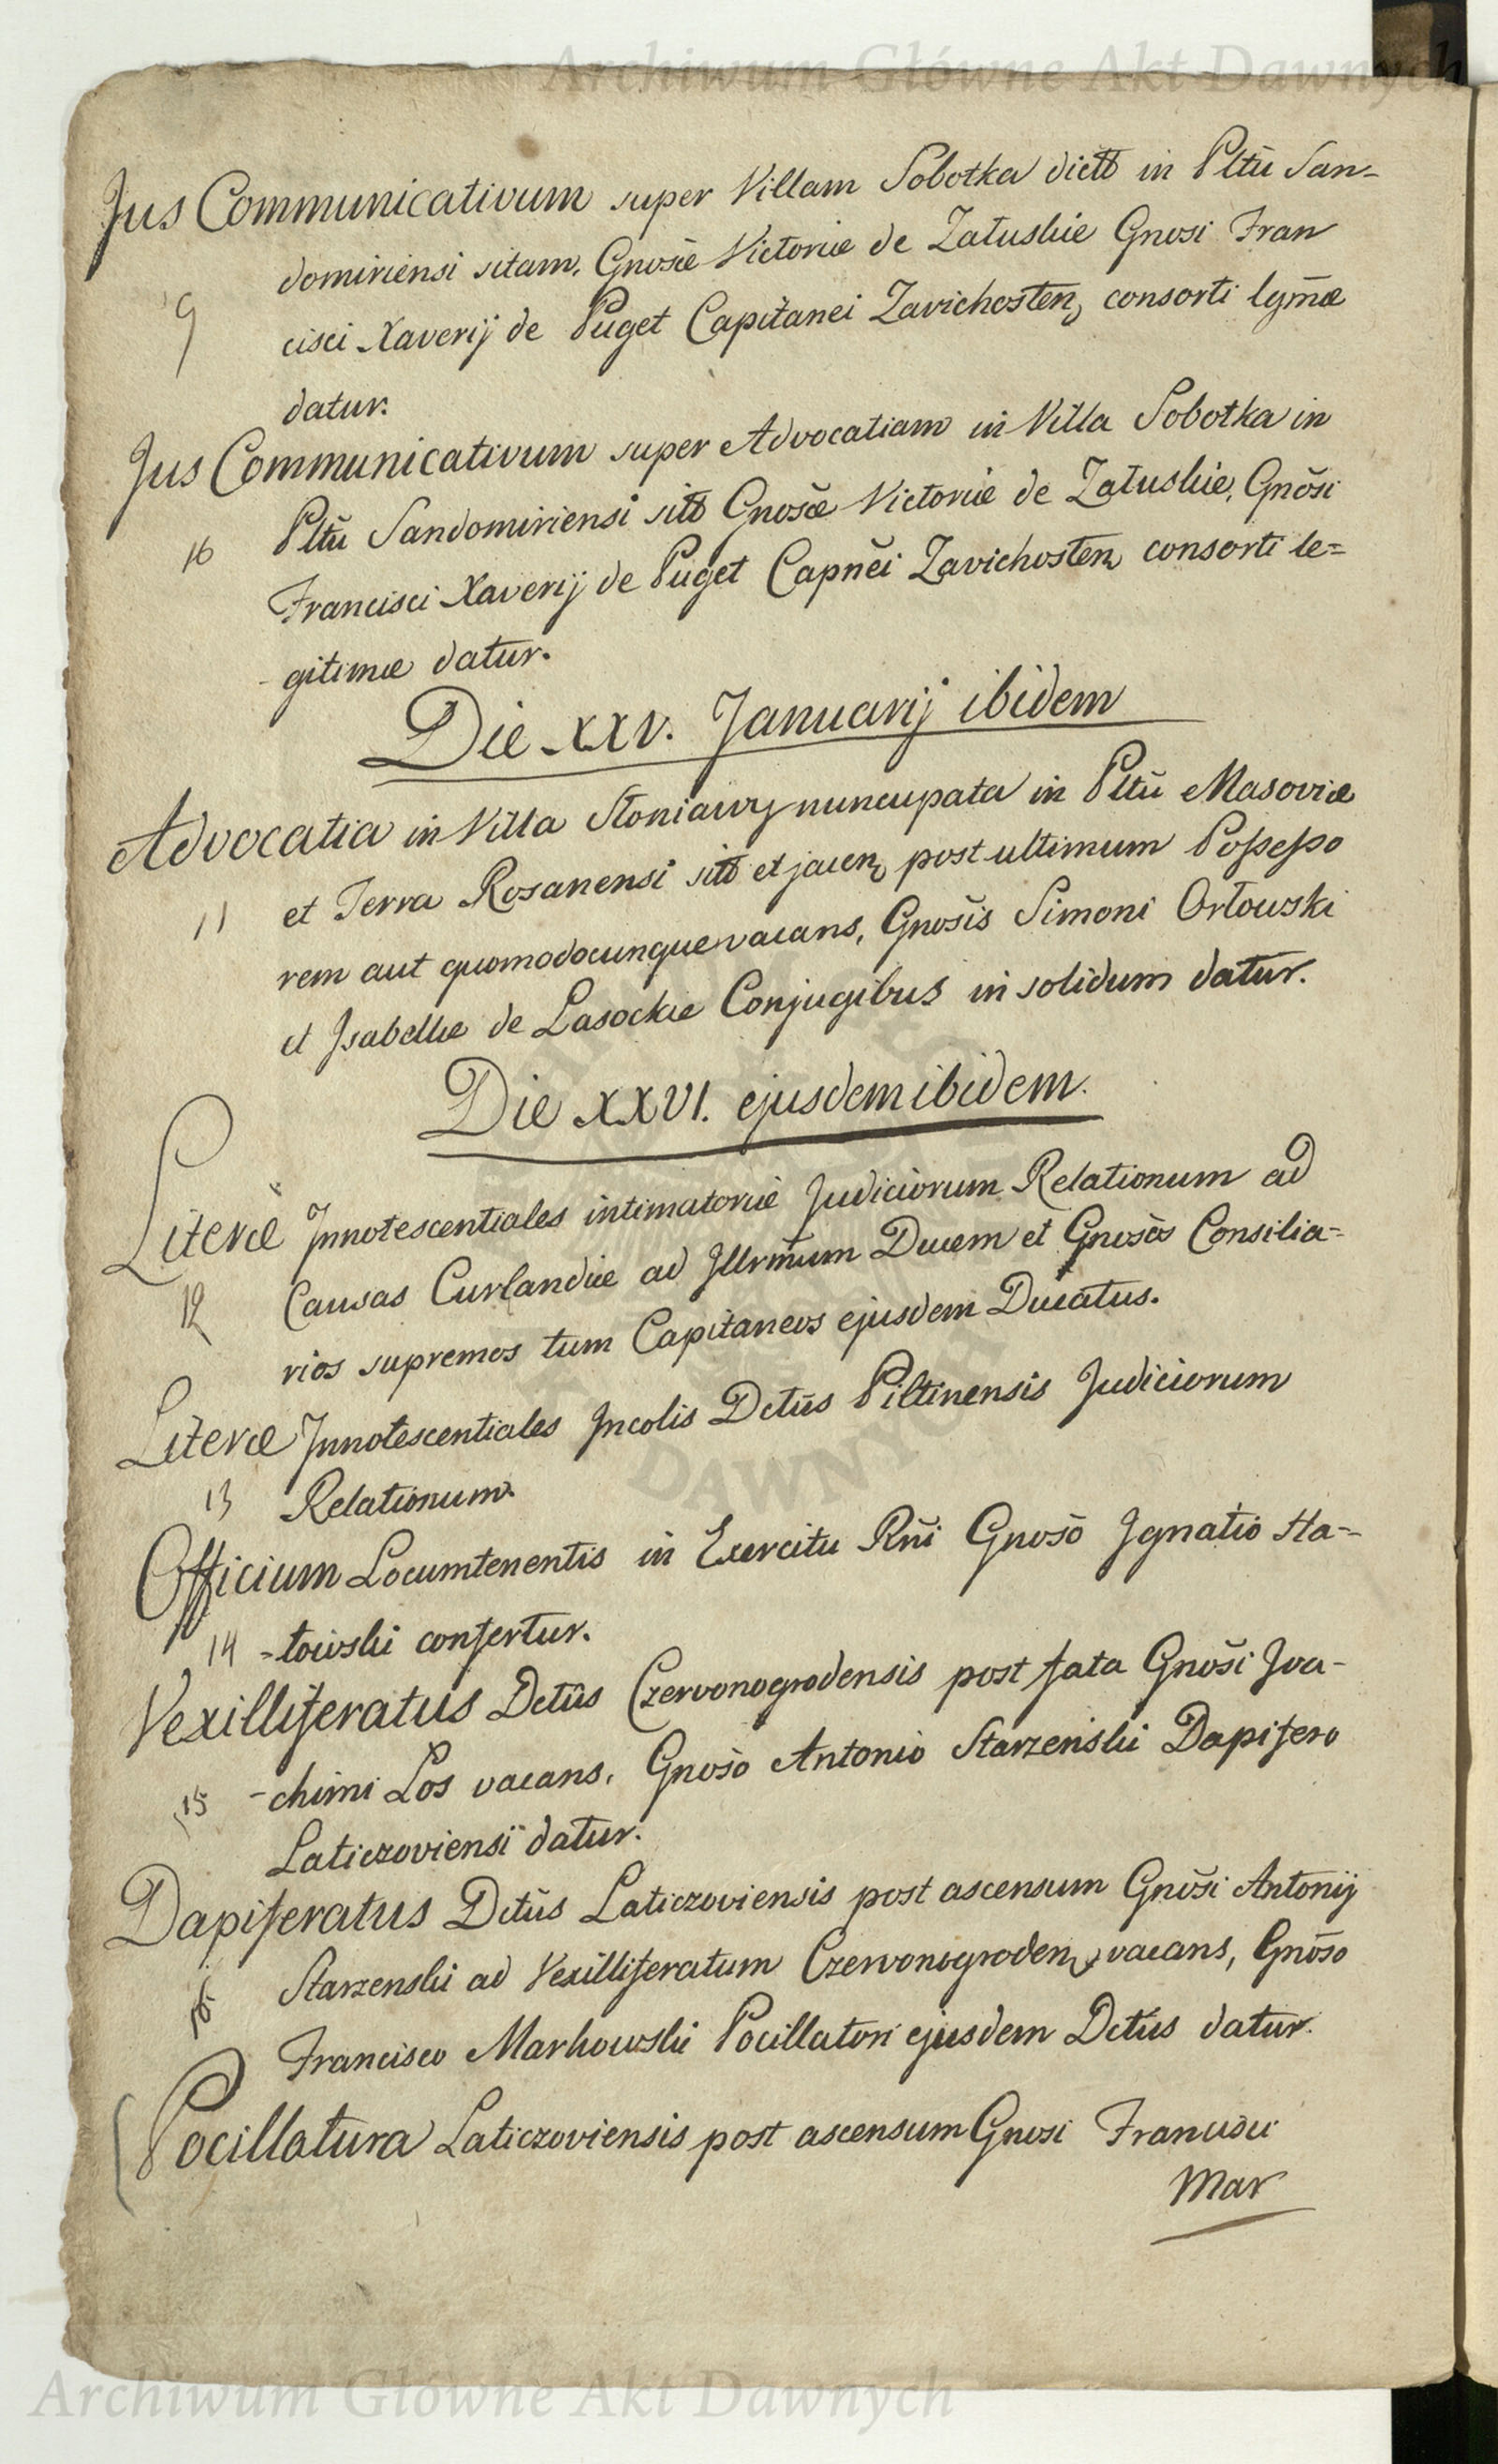 Archiwum Główne Akt Dawnych
Jus Communicativum super Villam Sobotka dictt in Pltũ San=
domiriensi sitam, Gnosæ Victoriæ de Załuskie Gnosi Fran
9
cisci Xaverij de Puget Capitanei Zavichosten, consorti lgmæ
datur.
Jus Communicativum super Advocatiam in Villa Sobotka in
10 Pltũ Sandomiriensi sitt Gnosæ Victoriæ de Załuskie, Gnosi
Francisci Xaverij de Puget Capnei Zavichosten consorti le=
gitimæ datur.
Die XXV. Januarij ibidem
Advocatia in Villa Słoniawy nuncupata in Pltũ Masoviæ
11 et Terra Rosanensi sitt et jacen, post ultimum Possesso
rem aut quomodocunque vacans, Gnosis Simoni Orłowski
et Isabellæ de Lasockie Conjugibus in solidum datur.
Die XXVI. ejusdem ibidem.
Literæ Innotescentiales intimatoriæ Judiciorum Relationum ad
12 Causas Curlandiæ ad Illrmum Ducem et Gnosos Consilia=
rios supremos tum Capitaneos ejusdem Ducatus.
Literæ Innotescentiales Incolis Dctũs Piltinensis Judiciorum
13 Relationum.
Officium Locumtenentis in Exercitu Rñi Gnoso Ignatio Ha=
14 =łowski confertur.
Vexilliferatus Dctũs Czervonogrodensis post fata Gnosi Joa-
15 -chimi Łos vacans, Gnoso Antonio Starzenski Dapifero
Laticzoviensi datur.
Dapiferatus Dctũs Laticzoviensis post ascensum Gnosi Antonij
16 Starzenski ad Vexilliferatum Czervonogroden, vacans, Gnoso
Francisco Markowski Pocillatori ejusdem Dctũs datur.
Pocillatura Laticzoviensis post ascensum Gnosi Francisci
Mar
DAWNYCH
Archiwum Główne Akt Dawnych